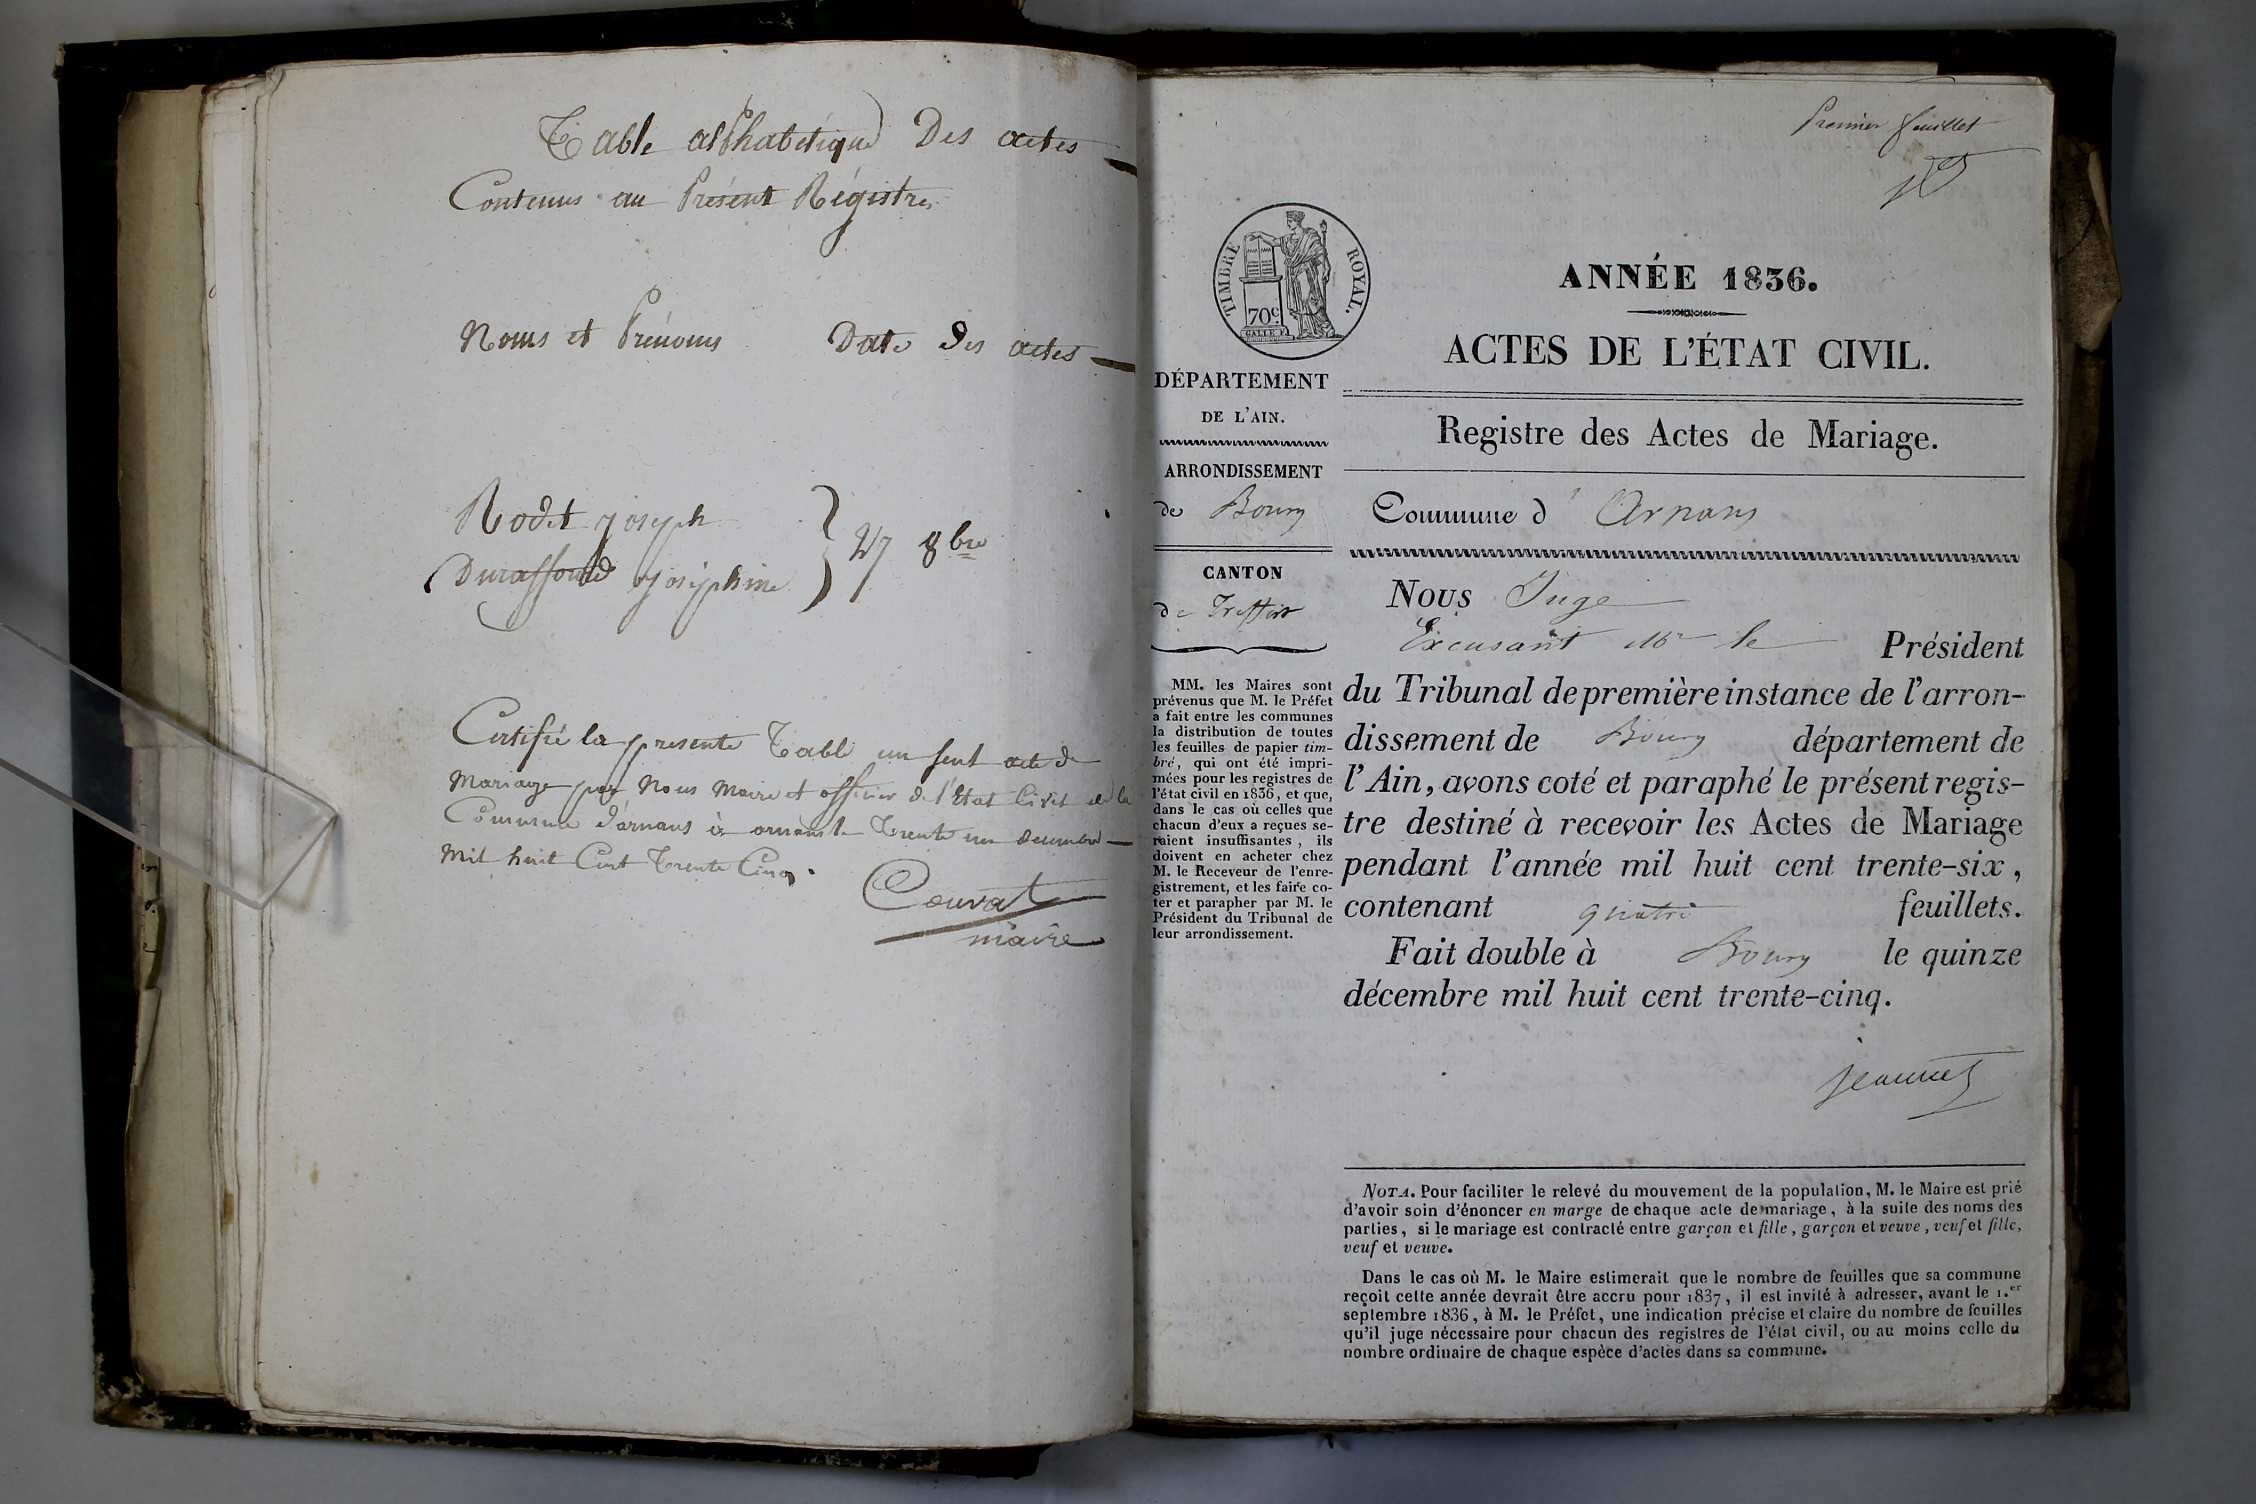 Table alphabétique Des actes
Contenus au Présent Régistre
Noms et Prénoms Date des actes
Rodet joseph
Duraffourd josephine
27 8bre
Certifié la presente Table un seul acte de
Mariage par Nous Maire et officier de l'Etat Civil de la
Commune d'arnans à arnans le Trente un decembre
Mil huit Cent Trente Cinq.
Couvat
maire
Premier feuillet
TIMBRE ROYAL.
70c.
GALLE F.
DÉPARTEMENT
DE L'AIN.
ARRONDISSEMENT
de Bourg
CANTON
de Treffort
MM. les Maires sont
prévenus que M. le Préfet
a fait entre les communes
la distribution de toutes
les feuilles de papier tim-
bré, qui ont été impri-
mées pour les registres de
l'état civil en 1836, et que,
dans le cas où celles que
chacun d'eux a reçues se-
raient insuffisantes, ils
doivent en acheter chez
M. le Receveur de l'enre-
gistrement, et les faire co-
ter et parapher par M. le
Président du Tribunal de
leur arrondissement.
ANNÉE 1836.
ACTES DE L'ÉTAT CIVIL.
Registre des Actes de Mariage.
Commune d'Arnans
Nous Juge
Excusant Mr le Président
du Tribunal de première instance de l'arron-
dissement de Bourg département de
l'Ain, avons coté et paraphé le présent regis-
tre destiné à recevoir les Actes de Mariage
pendant l'année mil huit cent trente-six,
contenant quatre feuillets.
Fait double à Bourg le quinze
décembre mil huit cent trente-cinq.
Jeannet
NOTA. Pour faciliter le relevé du mouvement de la population, M. le Maire est prié
d'avoir soin d'énoncer en marge de chaque acte de mariage, à la suite des noms des
parties, si le mariage est contracté entre garçon et fille, garçon et veuve, veuf et fille,
veuf et veuve.
Dans le cas où M. le Maire estimerait que le nombre de feuilles que sa commune
reçoit cette année devrait être accru pour 1837, il est invité à adresser, avant le 1.er
septembre 1836, à M. le Préfet, une indication précise et claire du nombre de feuilles
qu'il juge nécessaire pour chacun des registres de l'état civil, ou au moins celle du
nombre ordinaire de chaque espèce d'actes dans sa commune.